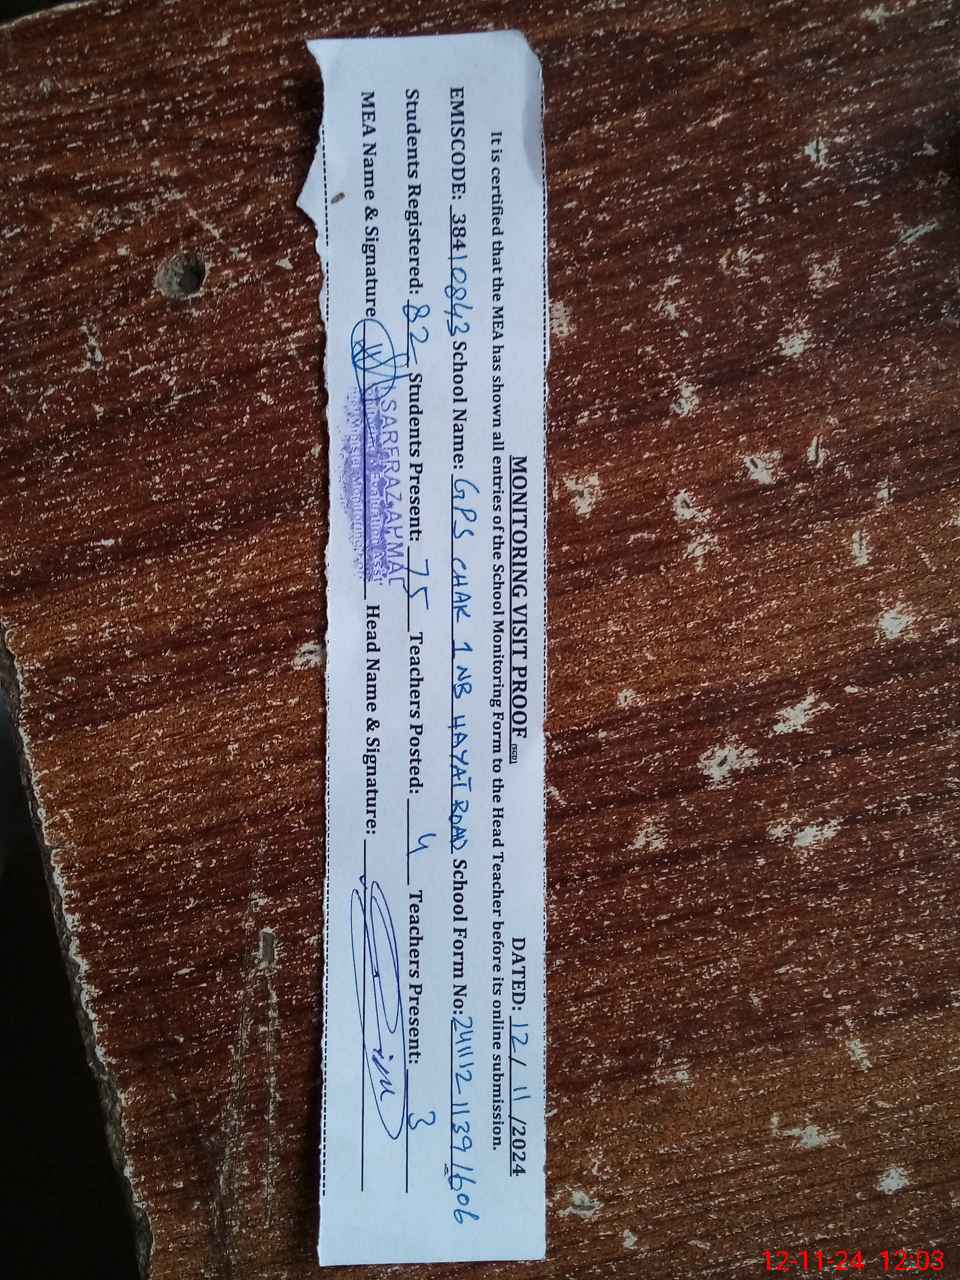 MONITORING VISIT PROOF DATED: 12/11/2024
It is certified that the MEA has shown all entries of the School Monitoring Form to the Head Teacher before its online submission.
EMISCODE: 38410843 School Name: GPS CHAK 1 NB HAYAT ROAD School Form No: 241112-11391606
Students Registered: 82 Students Present: 75 Teachers Posted: 4 Teachers Present: 3
MEA Name & Signature Head Name & Signature:
SARFRAZ AHMAD
12-11-24 12:03